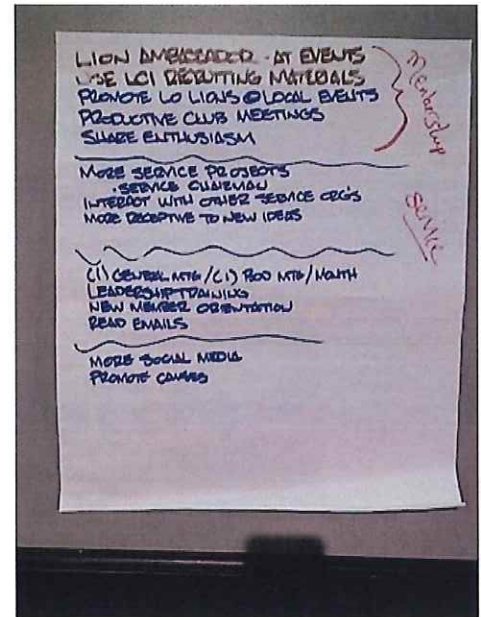 LION AMBASSADOR - AT EVENTS
USE LCI RECRUITING MATERIALS
PROMOTE LO LIONS @ LOCAL EVENTS
PRODUCTIVE CLUB MEETINGS
SHARE ENTHUSIASM
Membership
MORE SERVICE PROJECTS
· SERVICE CHAIRMAN
INTERACT WITH OTHER SERVICE ORG'S
MORE RECEPTIVE TO NEW IDEAS
SERVICE
(1) GENERAL MTG / (1) BOD MTG / MONTH
LEADERSHIP TRAINING
NEW MEMBER ORIENTATION
READ EMAILS
MORE SOCIAL MEDIA
PROMOTE CAUSES